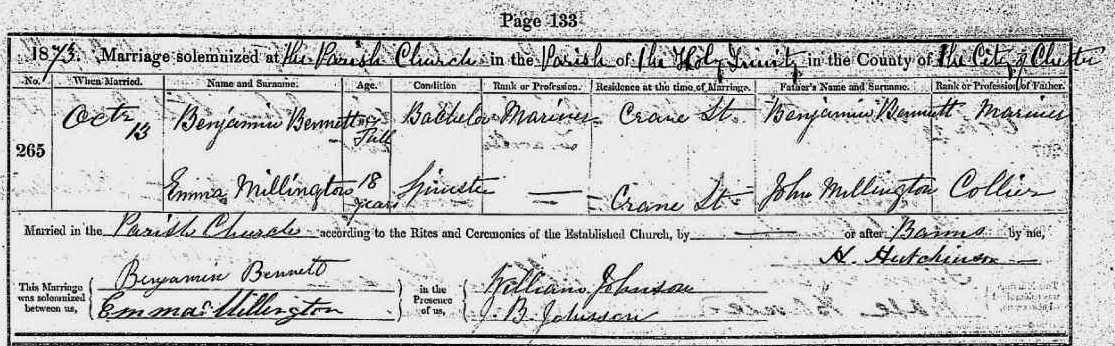 Page 133
1873. Marriage solemnized at the Parish Church in the Parish of the Holy Trinity in the County of the City of Chester
No. When Married. Name and Surname. Age. Condition Rank or Profession. Residence at the time of Marriage. Father's Name and Surname. Rank or Profession of Father.
265
Octr 13 Benjamin Bennett Full Bachelor Mariner Crane St. Benjamin Bennett Mariner
Emma Millington 18 years Spinster — Crane St John Millington Collier
Married in the Parish Church according to the Rites and Ceremonies of the Established Church, by — or after Banns by me,
H. Hutchinson
This Marriage was solemnized between us, Benjamin Bennett
Emma Millington
in the Presence of us, William Johnson
J. B. Johnson